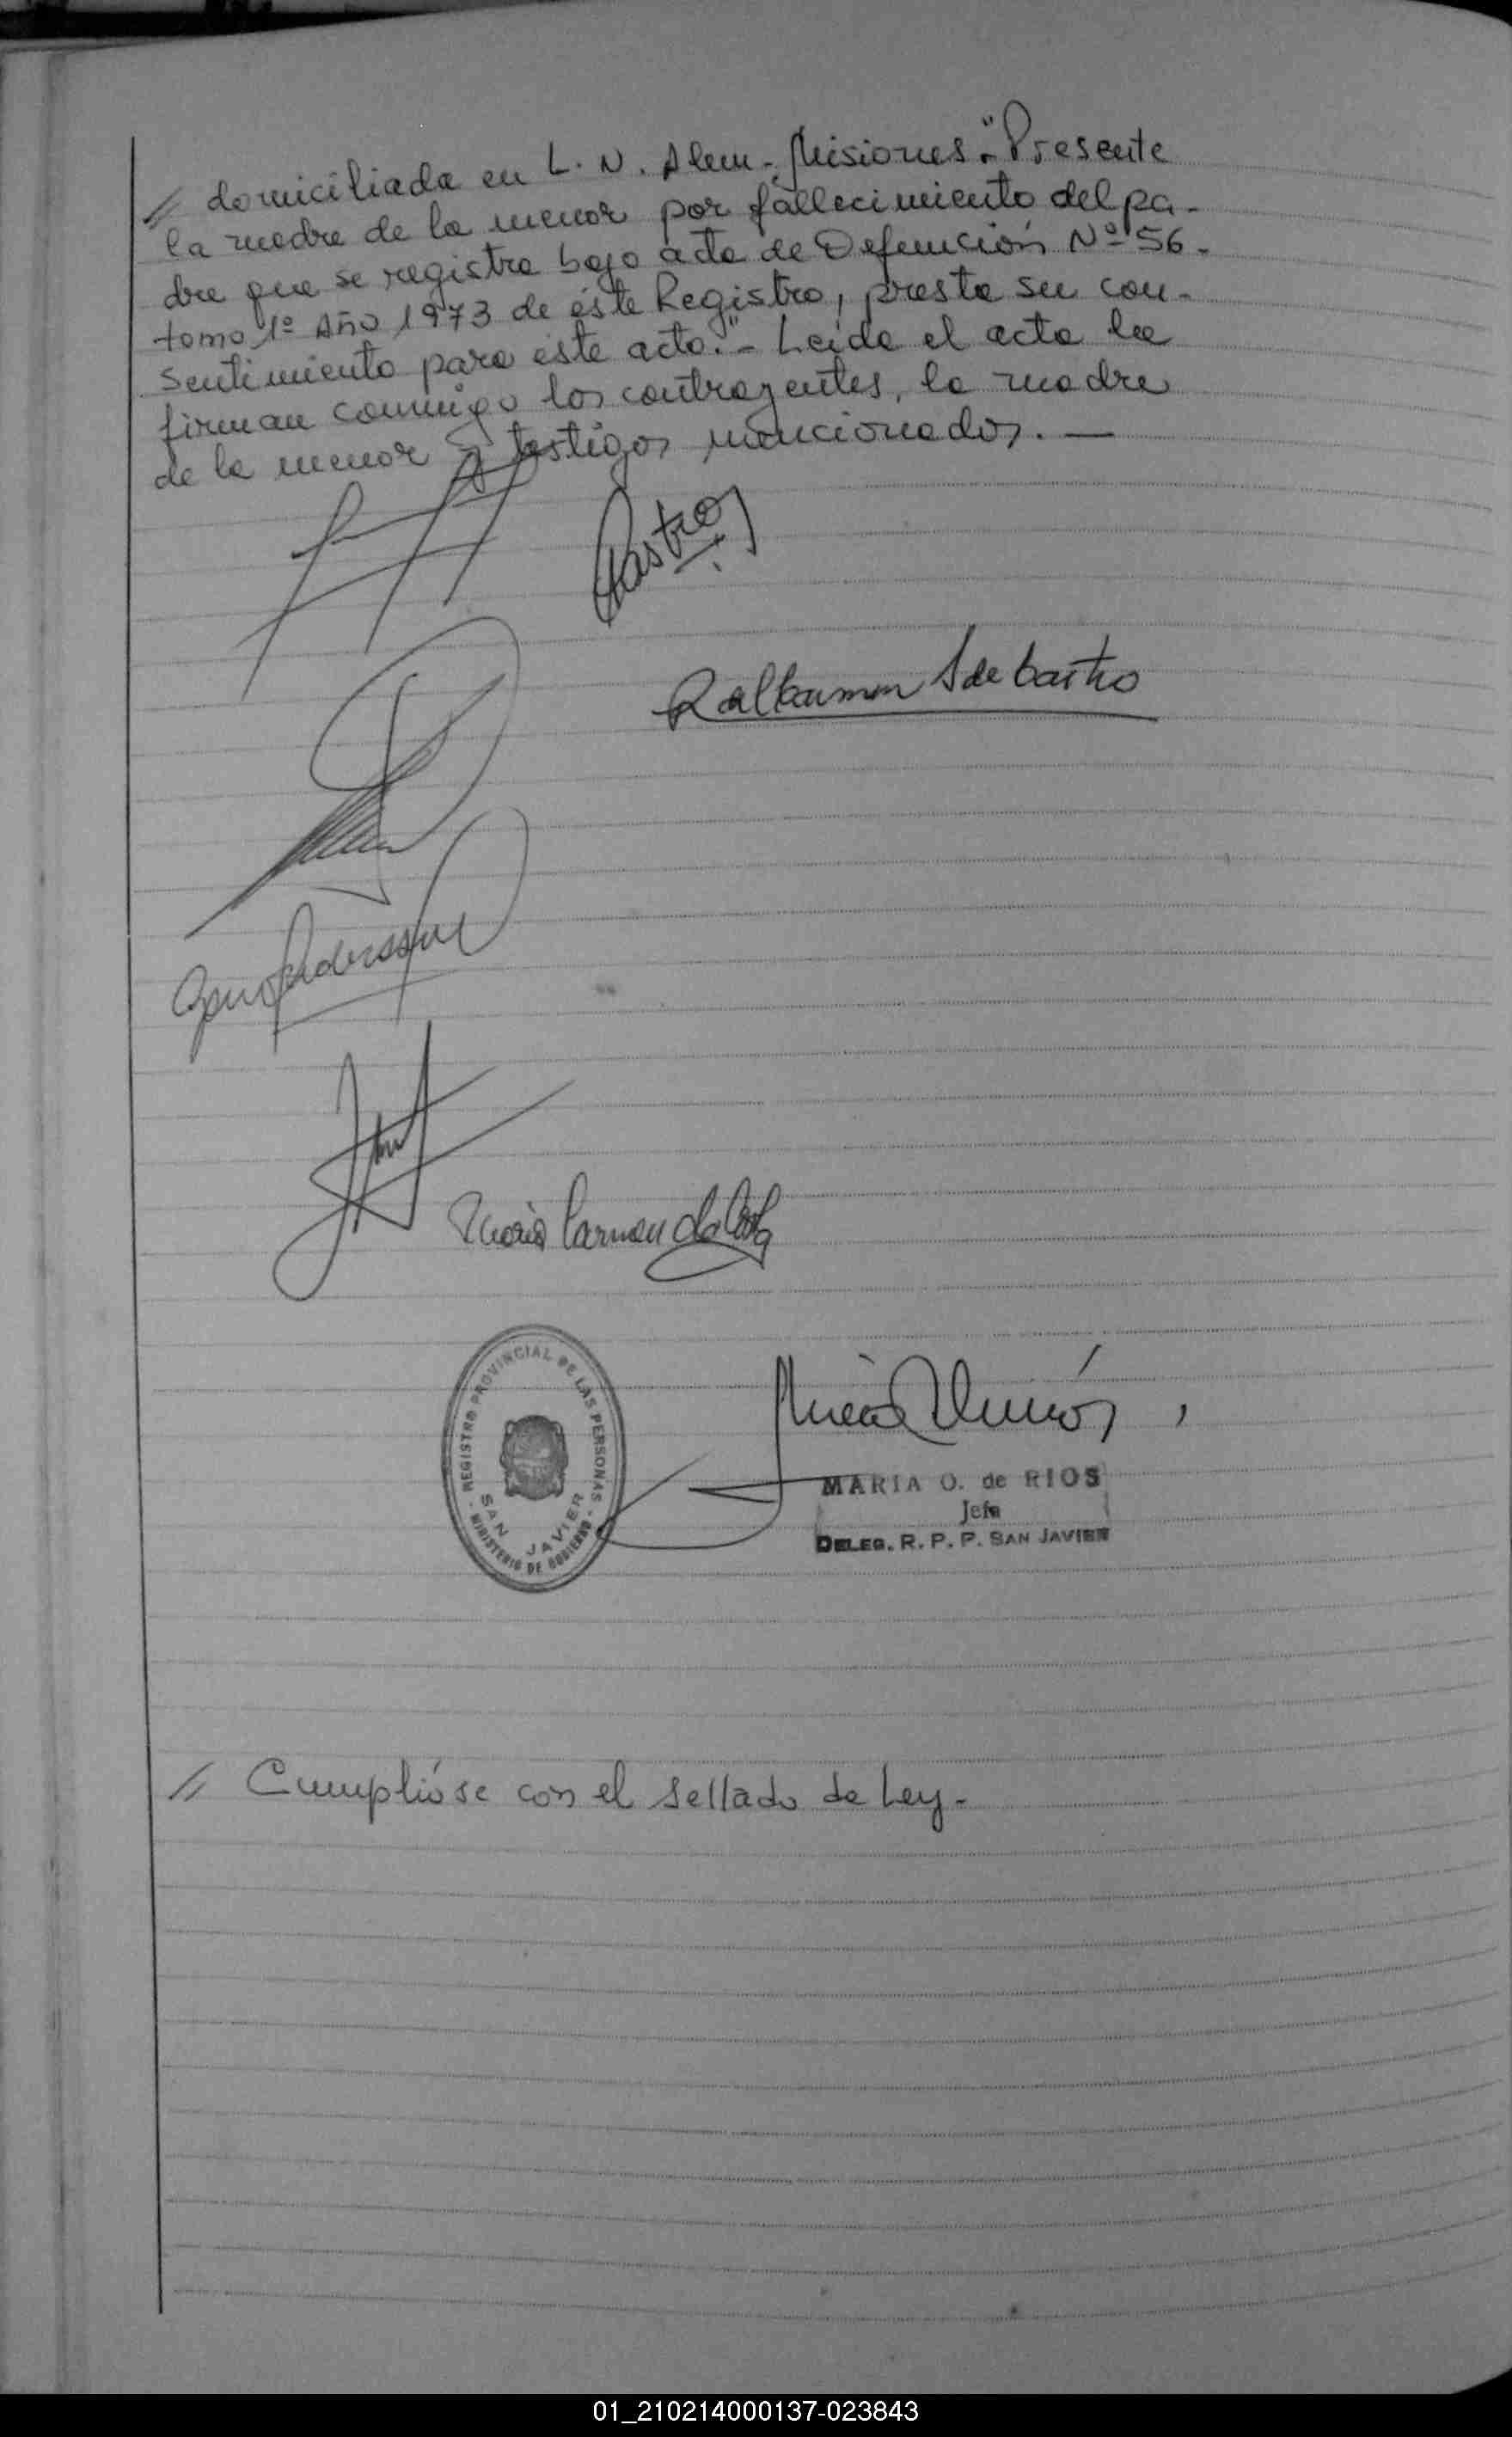 // domiciliada en L. N. Alem - Misiones.-" Presente
la madre de la menor por fallecimiento del pa-
dre que se registra bajo acta de Defunción Nº 56 -
tomo 1º Año 1973 de éste Registro, presta su con-
sentimiento para éste acto."- Leída el acta la
firman conmigo los contrayentes, la madre
de la menor y testigos mencionados. —
Castro
del Carmen de Castro
Maria Carmen da
REGISTRO PROVINCIAL DE LAS PERSONAS
SAN JAVIER
- MINISTERIO DE GOBIERNO -
MARIA O. de RIOS
Jefe
DELEG. R. P. P. SAN JAVIER
// Cumplióse con el sellado de Ley -
01_210214000137-023843